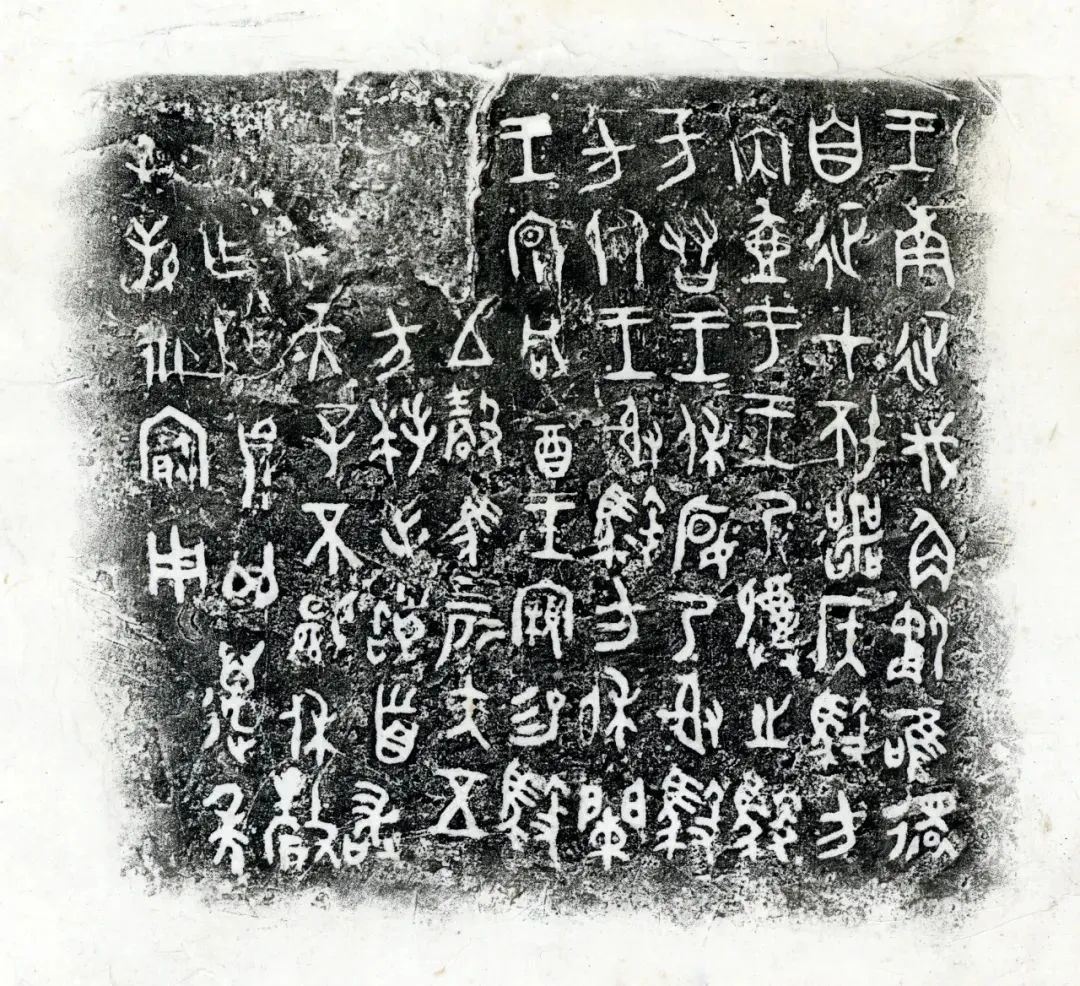 王南征伐角僪唯還
自征才坏噩侯馭方
内壺于王乃祼之馭
方友王休匽乃射馭
方卿王射馭方休闌
王宴咸酓王親易馭
五瑴馬四匹矢五
方拜手稽首敢
天子不顯休釐
乍尊鼎其邁年
子孫永寶用